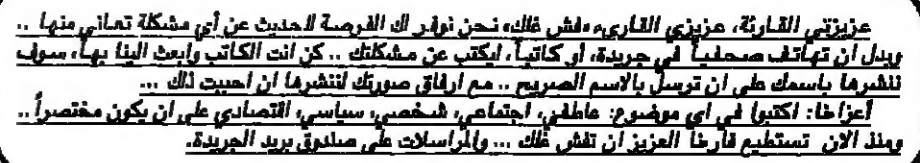 عزيزتي القارئة، عزيزي القارىء «فش غلك» نحن نوفر لك الفرصة للحديث عن أي مشكلة تعاني منها ..
وبدل ان تهاتف صحفياً في جريدة، أو كاتباً، ليكتب عن مشكلتك .. كن انت الكاتب وابعث الينا بها، سوف
ننشرها باسمك على ان ترسل بالاسم الصريح .. مع ارفاق صورتك لننشرها ان احببت ذلك ...
أعزاءنا: اكتبوا في اي موضوع: عاطفي، اجتماعي، شخصي، سياسي، اقتصادي على ان يكون مختصراً ..
ومنذ الان تستطيع قارئنا العزيز ان تفش غلك ... والمراسلات على صندوق بريد الجريدة.